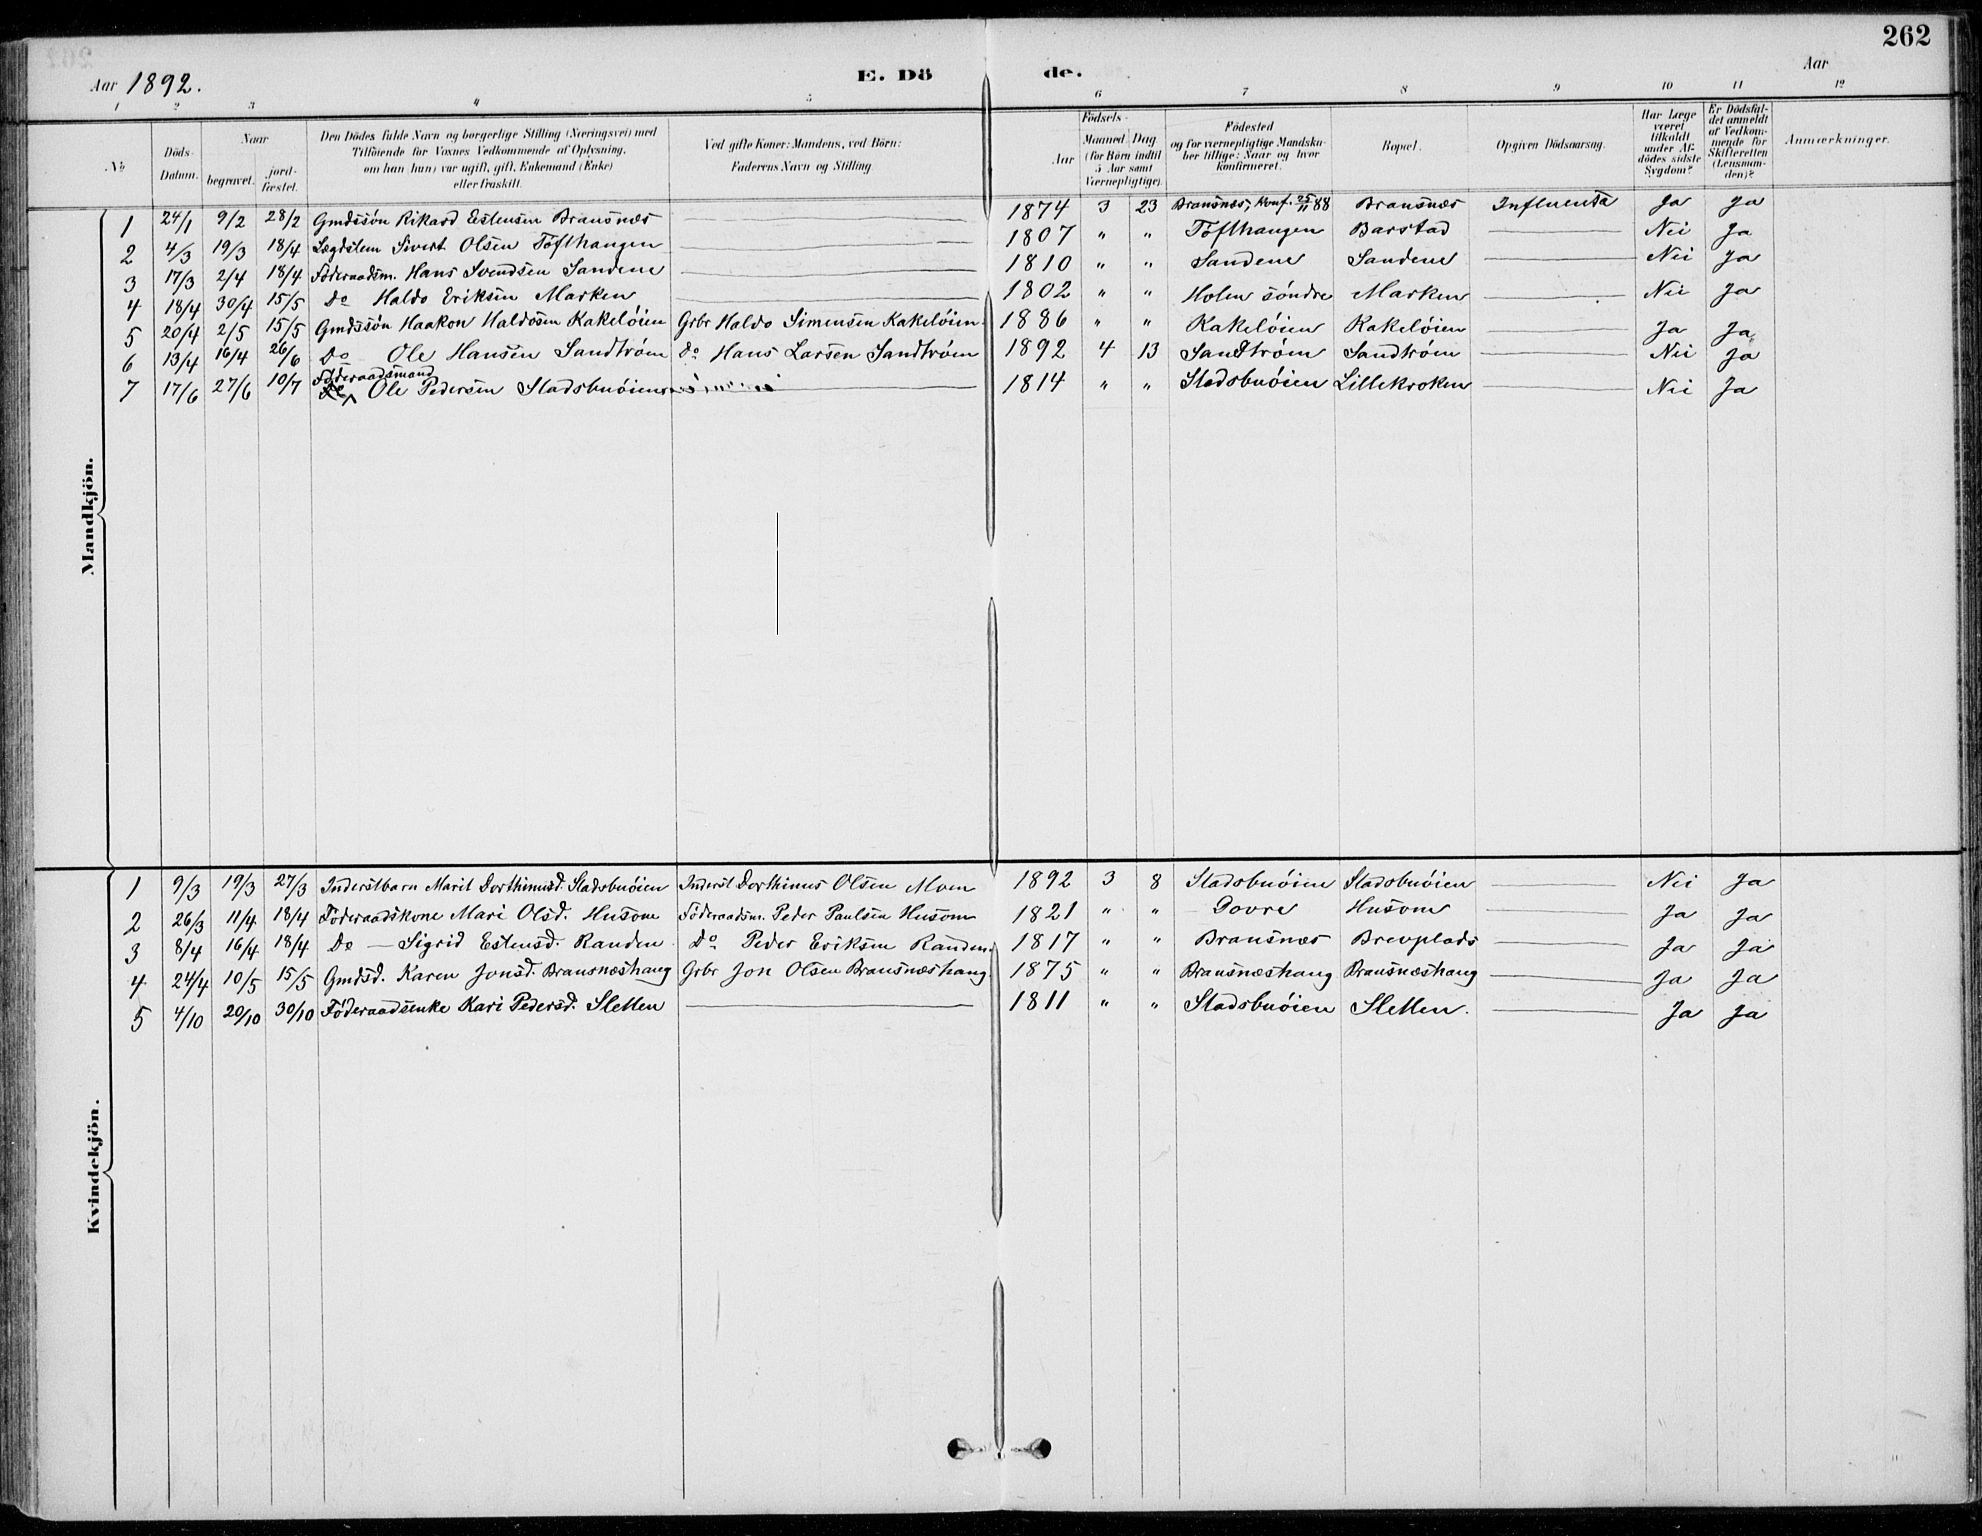 262
Aar 1892.
E. Dö de.
Aar
1 2 3 4 5 6 7 8 9 10 11 12
No
Döds-Datum.
Naar
begravet.
jord-fæstet.
Den Dödes fulde Navn og borgerlige Stilling (Næringsvei) med
Tilföiende for Voxnes Vedkommende af Oplysning,
om han (hun) var ugift, gift, Enkemand (Enke)
eller fraskilt.
Ved gifte Koner: Mandens, ved Börn:
Faderens Navn og Stilling
Födsels-
Aar
Maaned Dag
(for Börn indtil
5 Aar samt
Værnepligtige).
Födested
og for værnepligtige Mandska-
ber tillige: Naar og hvor
konfirmeret.
Bopæl.
Opgiven Dödsaarsag.
Har Læge
været
tilkaldt
under Af-
dödes sidste
Sygdom?
Er Dödsfal-
det anmeldt
af Vedkom-
mende for
Skifteretten
(Lensman-
den)?
Anmærkninger.
Mandkjön.
1 24/1 9/2 28/2 Gmdssön Rikard Estensen Bransnæs 1874 3 23 Bransnæs, Konf. 25/11 88 Bransnæs Influensa Ja Ja
2 4/3 19/3 18/4 Lægdslem Sivert Olsen Töfthaugen 1807 " " Töfthaugen Barstad Nei Ja
3 17/3 2/4 18/4 Föderaadsm. Hans Svendsen Sandene 1810 " " Sandene Sandene Nei Ja
4 18/4 30/4 15/5 Do Haldo Eriksen Marken 1802 " " Holen söndre Marken Nei Ja
5 20/4 2/5 15/5 Gmdssön Haakon Haldosen Kakelöien Grbr Haldo Simensen Kakelöien 1886 " " Kakelöien Kakelöien Ja Ja
6 13/4 16/4 26/6 Do Ole Hansen Sandtröm do Hans Larsen Sandtröm 1892 4 13 Sandtröm Sandtröm Nei Ja
7 17/6 27/6 10/7 Föderaadsmand Ole Pedersen Stadsbuöien 1814 " " Stadsbuöien Lillekroken Nei Ja
Kvindekjön.
1 9/3 19/3 27/3 Inderstbarn Marit Dorthinusd. Stadsbuöien Inderst Dorthinus Olsen Moen 1892 3 8 Stadsbuöien Stadsbuöien Nei Ja
2 26/3 11/4 18/4 Föderaadskone Mari Olsd. Husom Föderaadsm. Peder Paulsen Husom 1821 " " Dovre Husom Ja Ja
3 8/4 16/4 18/4 Do — Sigrid Estensd. Randen Do Peder Eriksen Randen 1817 " " Bransnæs Brevplads Ja Ja
4 24/4 10/5 15/5 Gmdsd. Karen Jonsd. Bransnæshaug Grbr Jon Olsen Bransnæshaug 1875 " " Bransnæshaug Bransnæshaug Ja Ja
5 4/10 20/10 30/10 Föderaadsenke Kari Pedersd. Sletten 1811 " " Stadsbuöien Sletten. Ja Ja